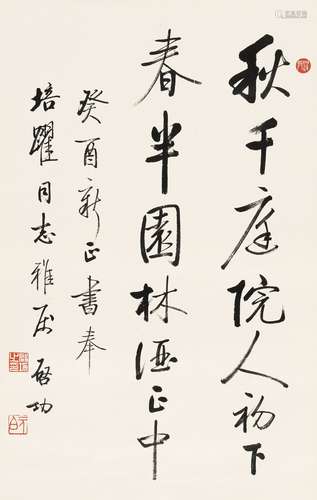 秋千庭院人初下
春半園林酒正中
癸酉新正書奉
培躍同志雅屬
啓功